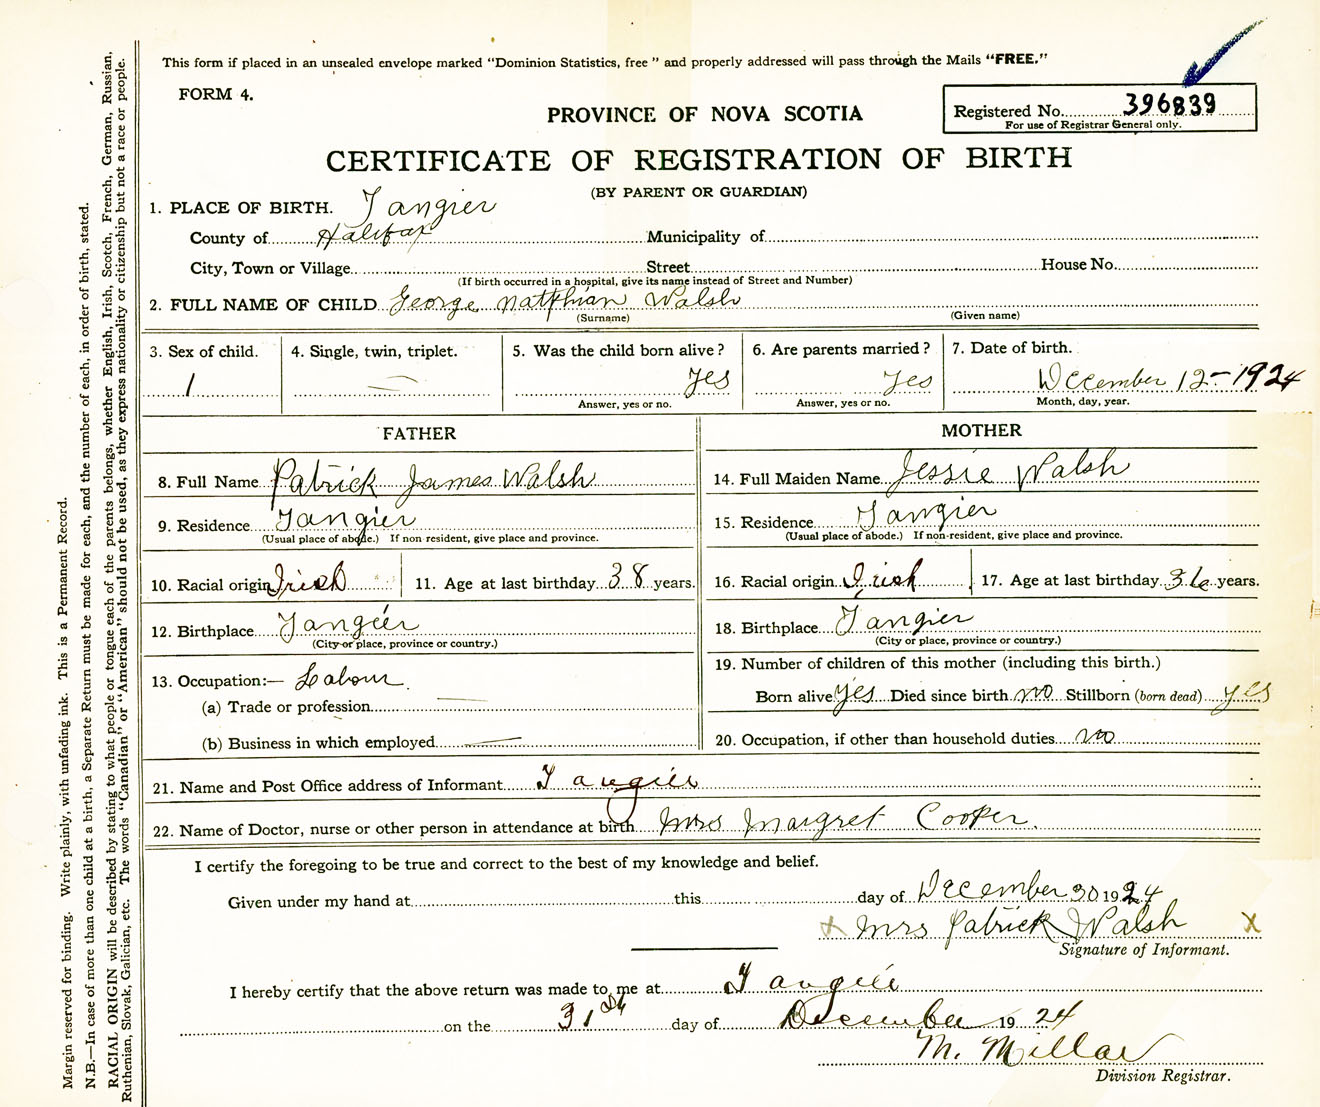 This form if placed in an unsealed envelope marked "Dominion Statistics, free" and properly addressed will pass through the Mails "FREE."
FORM 4.
PROVINCE OF NOVA SCOTIA
Registered No. 396839
For use of Registrar General only.
CERTIFICATE OF REGISTRATION OF BIRTH
(BY PARENT OR GUARDIAN)
1. PLACE OF BIRTH. Tangier
County of Halifax Municipality of
City, Town or Village Street House No.
(If birth occurred in a hospital, give its name instead of Street and Number)
2. FULL NAME OF CHILD George Natthian Walsh
(Surname) (Given name)
3. Sex of child. 4. Single, twin, triplet. 5. Was the child born alive? 6. Are parents married? 7. Date of birth.
1 — yes yes December 12-1924
Answer, yes or no. Answer, yes or no. Month, day, year.
FATHER MOTHER
8. Full Name Patrick James Walsh 14. Full Maiden Name Jessie Walsh
9. Residence Tangier 15. Residence Tangier
(Usual place of abode.) If non resident, give place and province. (Usual place of abode.) If non-resident, give place and province.
10. Racial origin Irish 11. Age at last birthday 38 years. 16. Racial origin Irish 17. Age at last birthday 36 years.
12. Birthplace Tangier 18. Birthplace Tangier
(City or place, province or country.) (City or place, province or country.)
13. Occupation:— Labour. 19. Number of children of this mother (including this birth.)
(a) Trade or profession — Born alive yes Died since birth no Stillborn (born dead) yes
(b) Business in which employed — 20. Occupation, if other than household duties no
21. Name and Post Office address of Informant Tangier
22. Name of Doctor, nurse or other person in attendance at birth Mrs Margret Cooper.
I certify the foregoing to be true and correct to the best of my knowledge and belief.
Given under my hand at this day of December 30 1924
x Mrs Patrick Walsh x
Signature of Informant.
I hereby certify that the above return was made to me at Tangier
on the 31st day of December 1924
M. Millar
Division Registrar.
Margin reserved for binding. Write plainly, with unfading ink. This is a Permanent Record.
N.B.—In case of more than one child at a birth, a Separate Return must be made for each, and the number of each, in order of birth, stated.
RACIAL ORIGIN will be described by stating to what people or tongue each of the parents belongs, whether English, Irish, Scotch, French, German, Russian,
Ruthenian, Slovak, Galician, etc. The words "Canadian" or "American" should not be used, as they express nationality or citizenship but not a race or people.